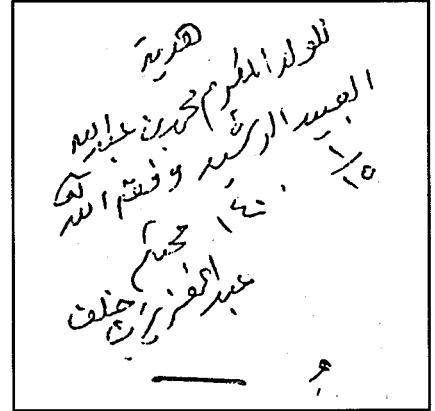 هدية
للولد المكرم محمد بن عبد الله
العبيد الرشيد وفقه الله
١٥/١
١٤٠٠
محبكم
عبد العزيز بن خلف